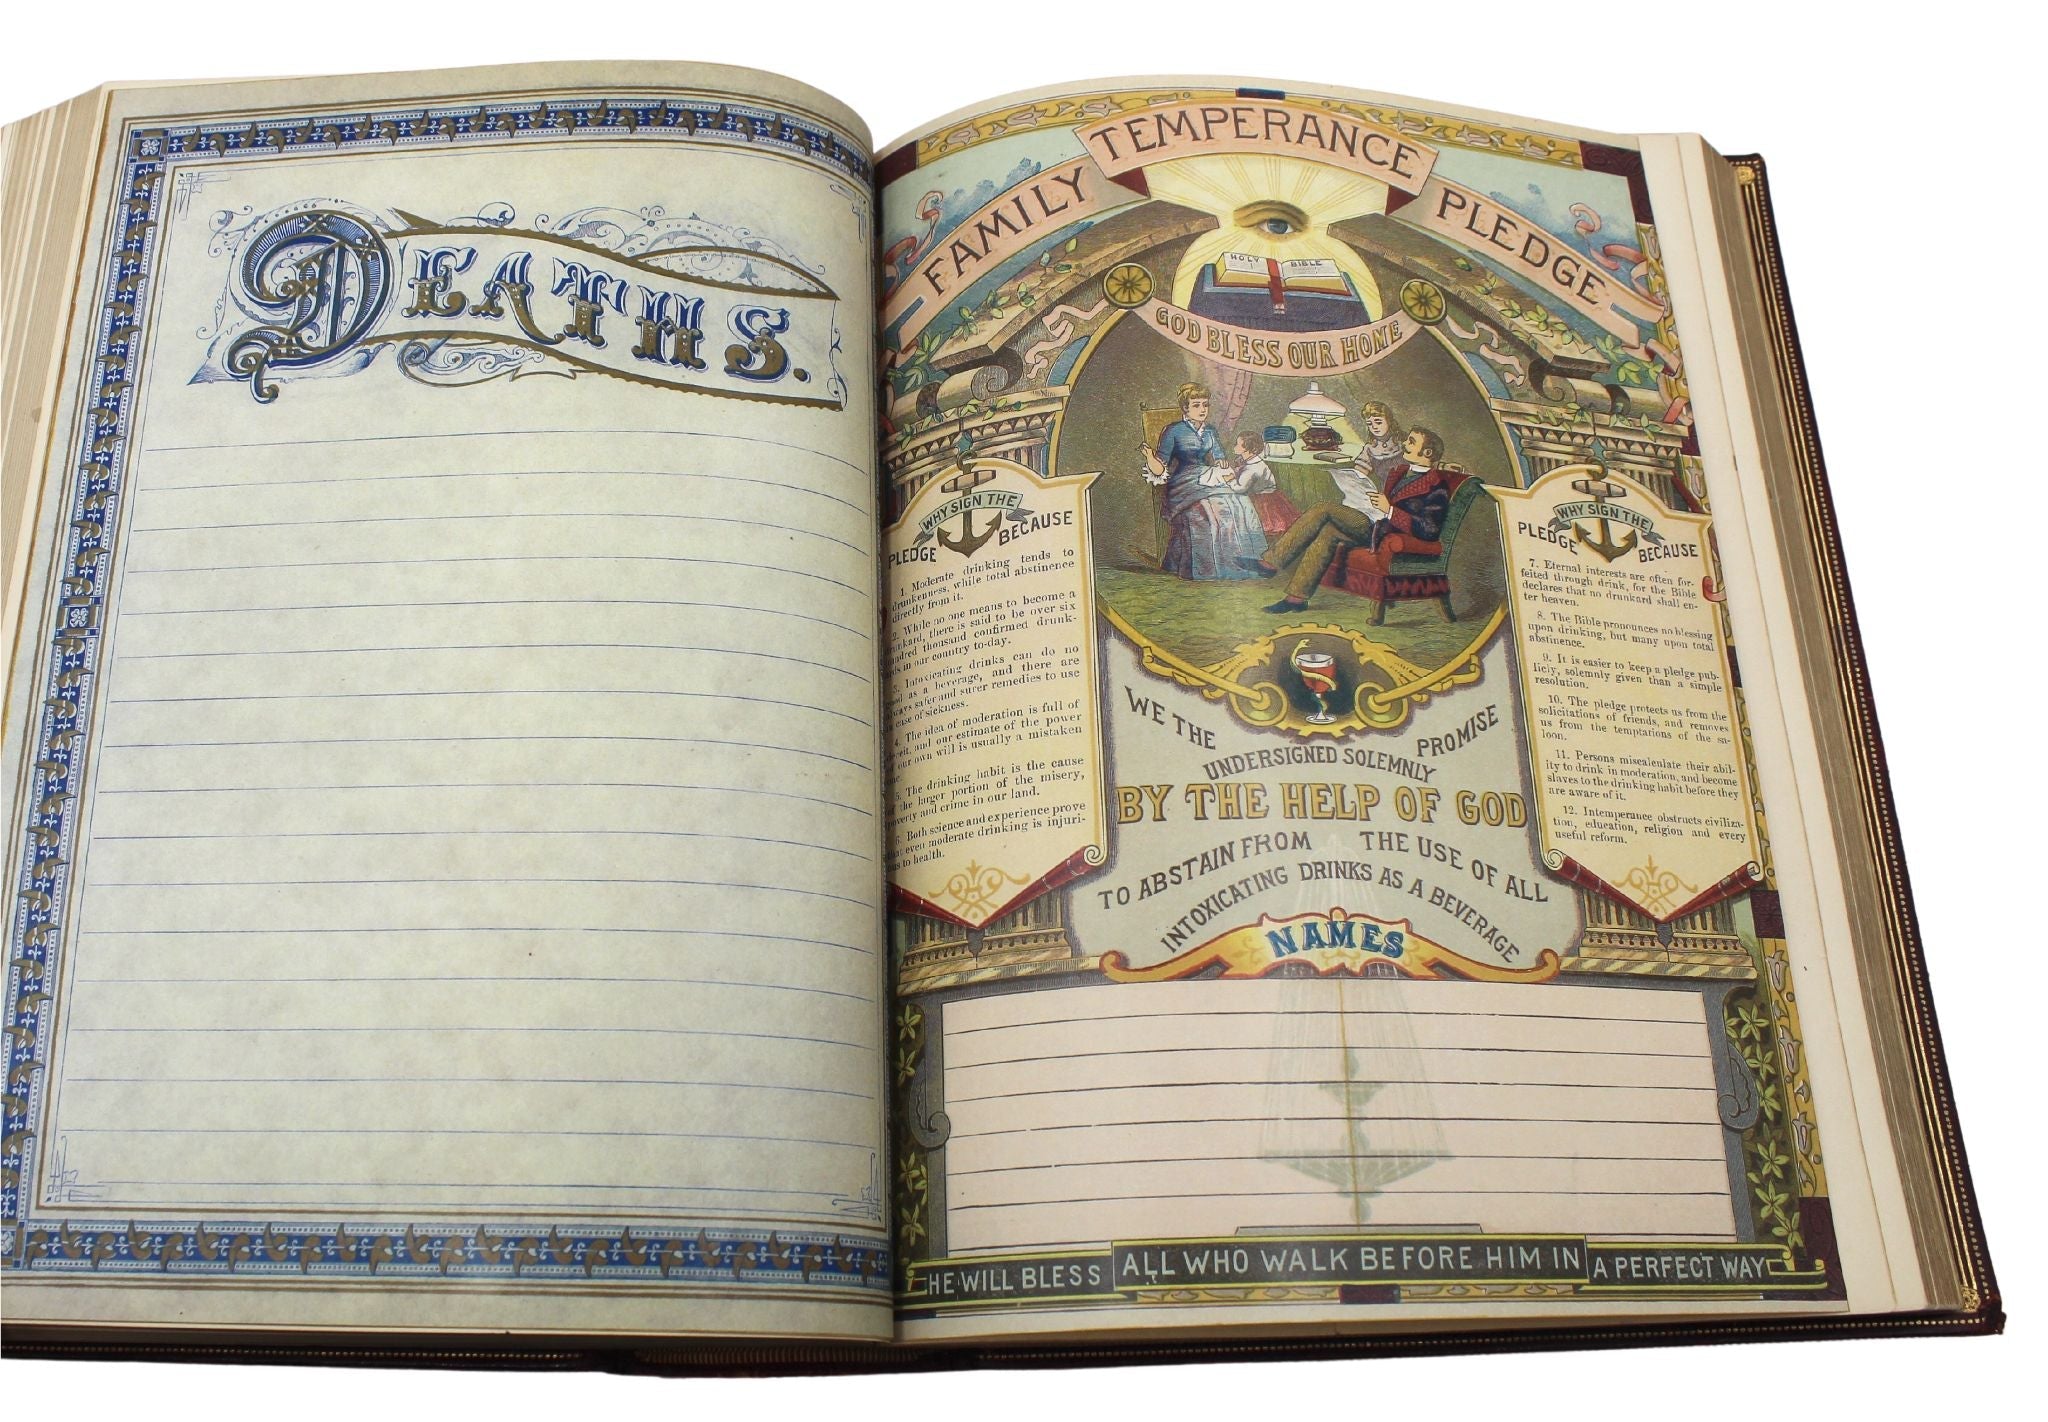 DEATHS.
FAMILY TEMPERANCE PLEDGE
HOLY BIBLE
GOD BLESS OUR HOME
WHY SIGN THE
PLEDGE BECAUSE
1. Moderate drinking tends to
drunkenness, while total abstinence
directly from it.
2. While no one means to become a
drunkard, there is said to be over six
hundred thousand confirmed drunk-
ards in our country to-day.
3. Intoxicating drinks can do no
good as a beverage, and there are
always safer and surer remedies to use
in case of sickness.
4. The idea of moderation is full of
deceit, and our estimate of the power
of our own will is usually a mistaken
one.
5. The drinking habit is the cause
of the larger portion of the misery,
poverty and crime in our land.
6. Both science and experience prove
that even moderate drinking is injuri-
ous to health.
WHY SIGN THE
PLEDGE BECAUSE
7. Eternal interests are often for-
feited through drink, for the Bible
declares that no drunkard shall en-
ter heaven.
8. The Bible pronounces no blessing
upon drinking, but many upon total
abstinence.
9. It is easier to keep a pledge pub-
licly, solemnly given than a simple
resolution.
10. The pledge protects us from the
solicitations of friends, and removes
us from the temptations of the sa-
loon.
11. Persons miscalculate their abil-
ity to drink in moderation, and become
slaves to the drinking habit before they
are aware of it.
12. Intemperance obstructs civiliza-
tion, education, religion and every
useful reform.
WE THE
UNDERSIGNED SOLEMNLY
PROMISE
BY THE HELP OF GOD
TO ABSTAIN FROM THE USE OF ALL
INTOXICATING DRINKS AS A BEVERAGE
NAMES
HE WILL BLESS ALL WHO WALK BEFORE HIM IN A PERFECT WAY